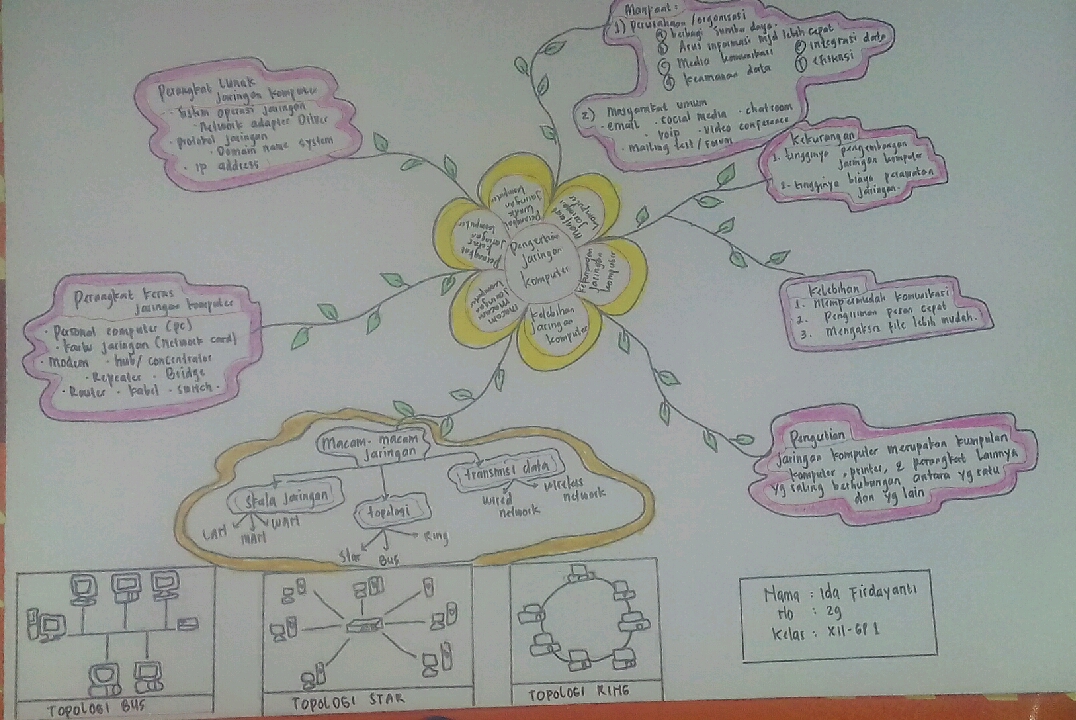 Manfaat :
1) Perusahaan /organisasi
a berbagi sumber daya.
b Arus informasi mjd lebih cepat
c Media komunikasi
d Keamanan data
e integrasi data
f efikasi
2) Masyarakat umum
- email - social media - chatroom
- voip - video conference
- mailing list / forum
Perangkat Lunak
Jaringan komputer
- Sistem operasi jaringan
- Network adapter Driver
- protokol jaringan
- Domain name system
- IP address
Kekurangan
1. tingginya pengembangan
jaringan komputer
2. tingginya biaya perawatan
jaringan.
Pengertian
Jaringan
komputer
perangkat
lunak
Jaringan
komputer
manfaat
jaringan
komputer
kekurangan
jaringan
komputer
kelebihan
jaringan
komputer
macam
macam
jaringan
komputer
perangkat
keras
jaringan
komputer
Kelebihan
1. Mempermudah komunikasi
2. Pengiriman pesan cepat
3. Mengakses file lebih mudah.
Perangkat keras
jaringan komputer
- Personal computer (pc)
- kartu jaringan (Network card)
- Modem - hub/concentrator
- Repeater - Bridge
- Router - kabel - switch -
Pengertian
jaringan komputer merupakan kumpulan
komputer, printer, & perangkat lainnya
yg saling berhubungan antara yg satu
dan yg lain
Macam-macam
jaringan
skala jaringan
LAN
MAN
WAN
topologi
Star
Bus
Ring
transmisi data
wired
network
wireless
network
TOPOLOGI BUS
TOPOLOGI STAR
TOPOLOGI RING
Nama : Ida Firdayanti
No : 29
Kelas : XII-GP 1